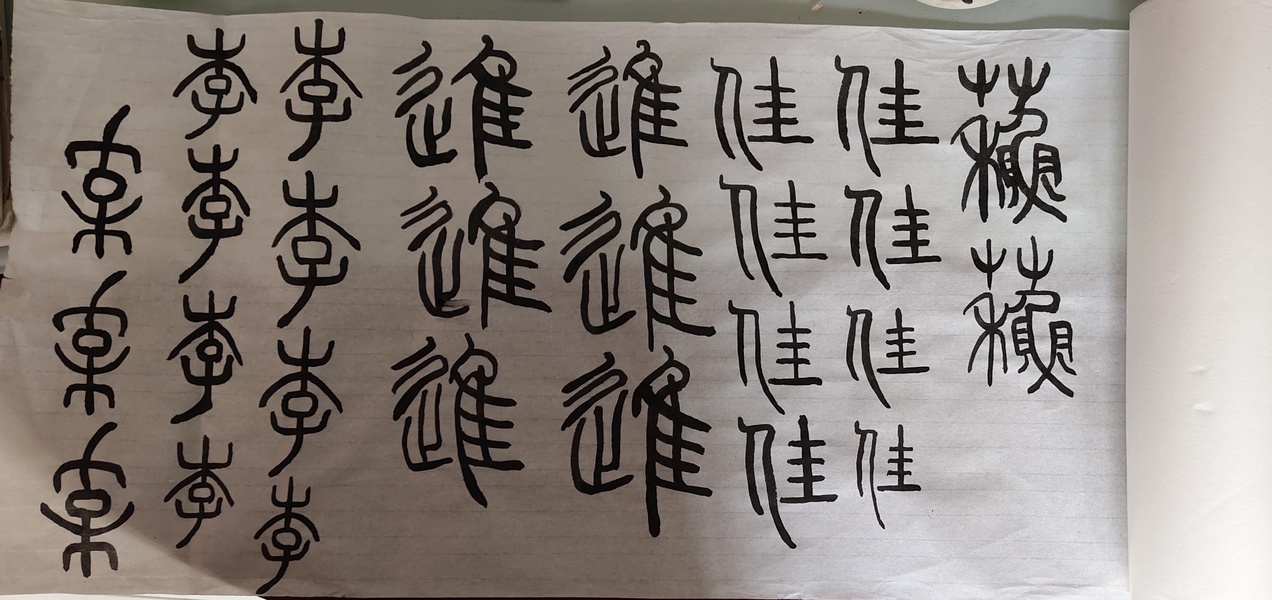 佳佳佳佳
佳佳佳佳
進進進
進進進
李李李李
李李李李